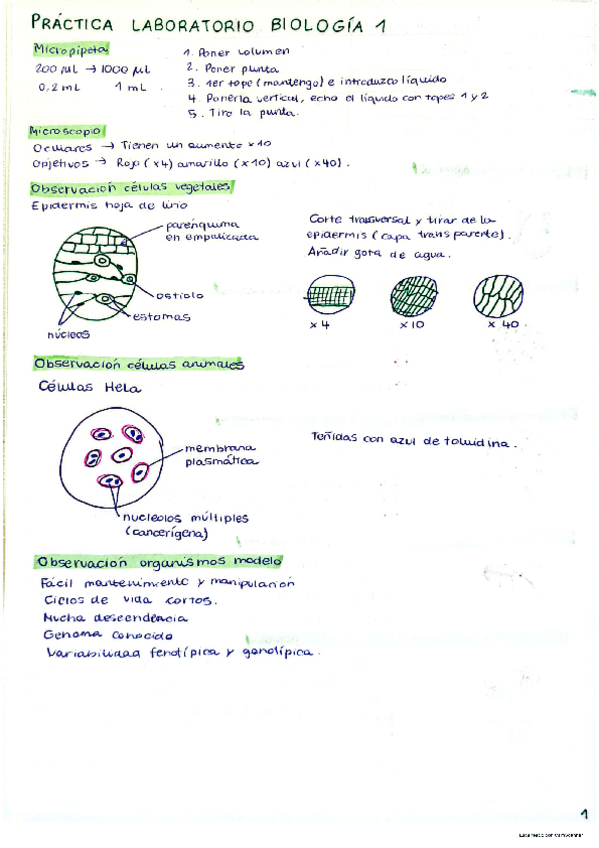 PRÁCTICA LABORATORIO BIOLOGÍA 1
Micropipeta
200 µL → 1000 µL
0,2 mL 1 mL .
1. Poner volumen
2. Poner punta
3. 1er tope (mantengo) e introduzco líquido
4. Ponerla vertical, echo el líquido con topes 1 y 2
5. Tiro la punta.
Microscopio
Oculares → Tienen un aumento x10
Objetivos → Rojo (x4) amarillo (x10) azul (x40).
Observación células vegetales
Epidermis hoja de lirio
parénquima
en empalizada
ostiolo
estomas
núcleos
Corte transversal y tirar de la
epidermis (capa transparente).
Añadir gota de agua.
x4 x10 x 40
Observación células animales
Células Hela
membrana
plasmática
nucleolos múltiples
(cancerígena)
Teñidas con azul de toluidina.
Observación organismos modelo
Fácil mantenimiento y manipulación
Ciclos de vida cortos.
Mucha descendencia
Genoma conocido
Variabilidad fenotípica y genotípica.
1